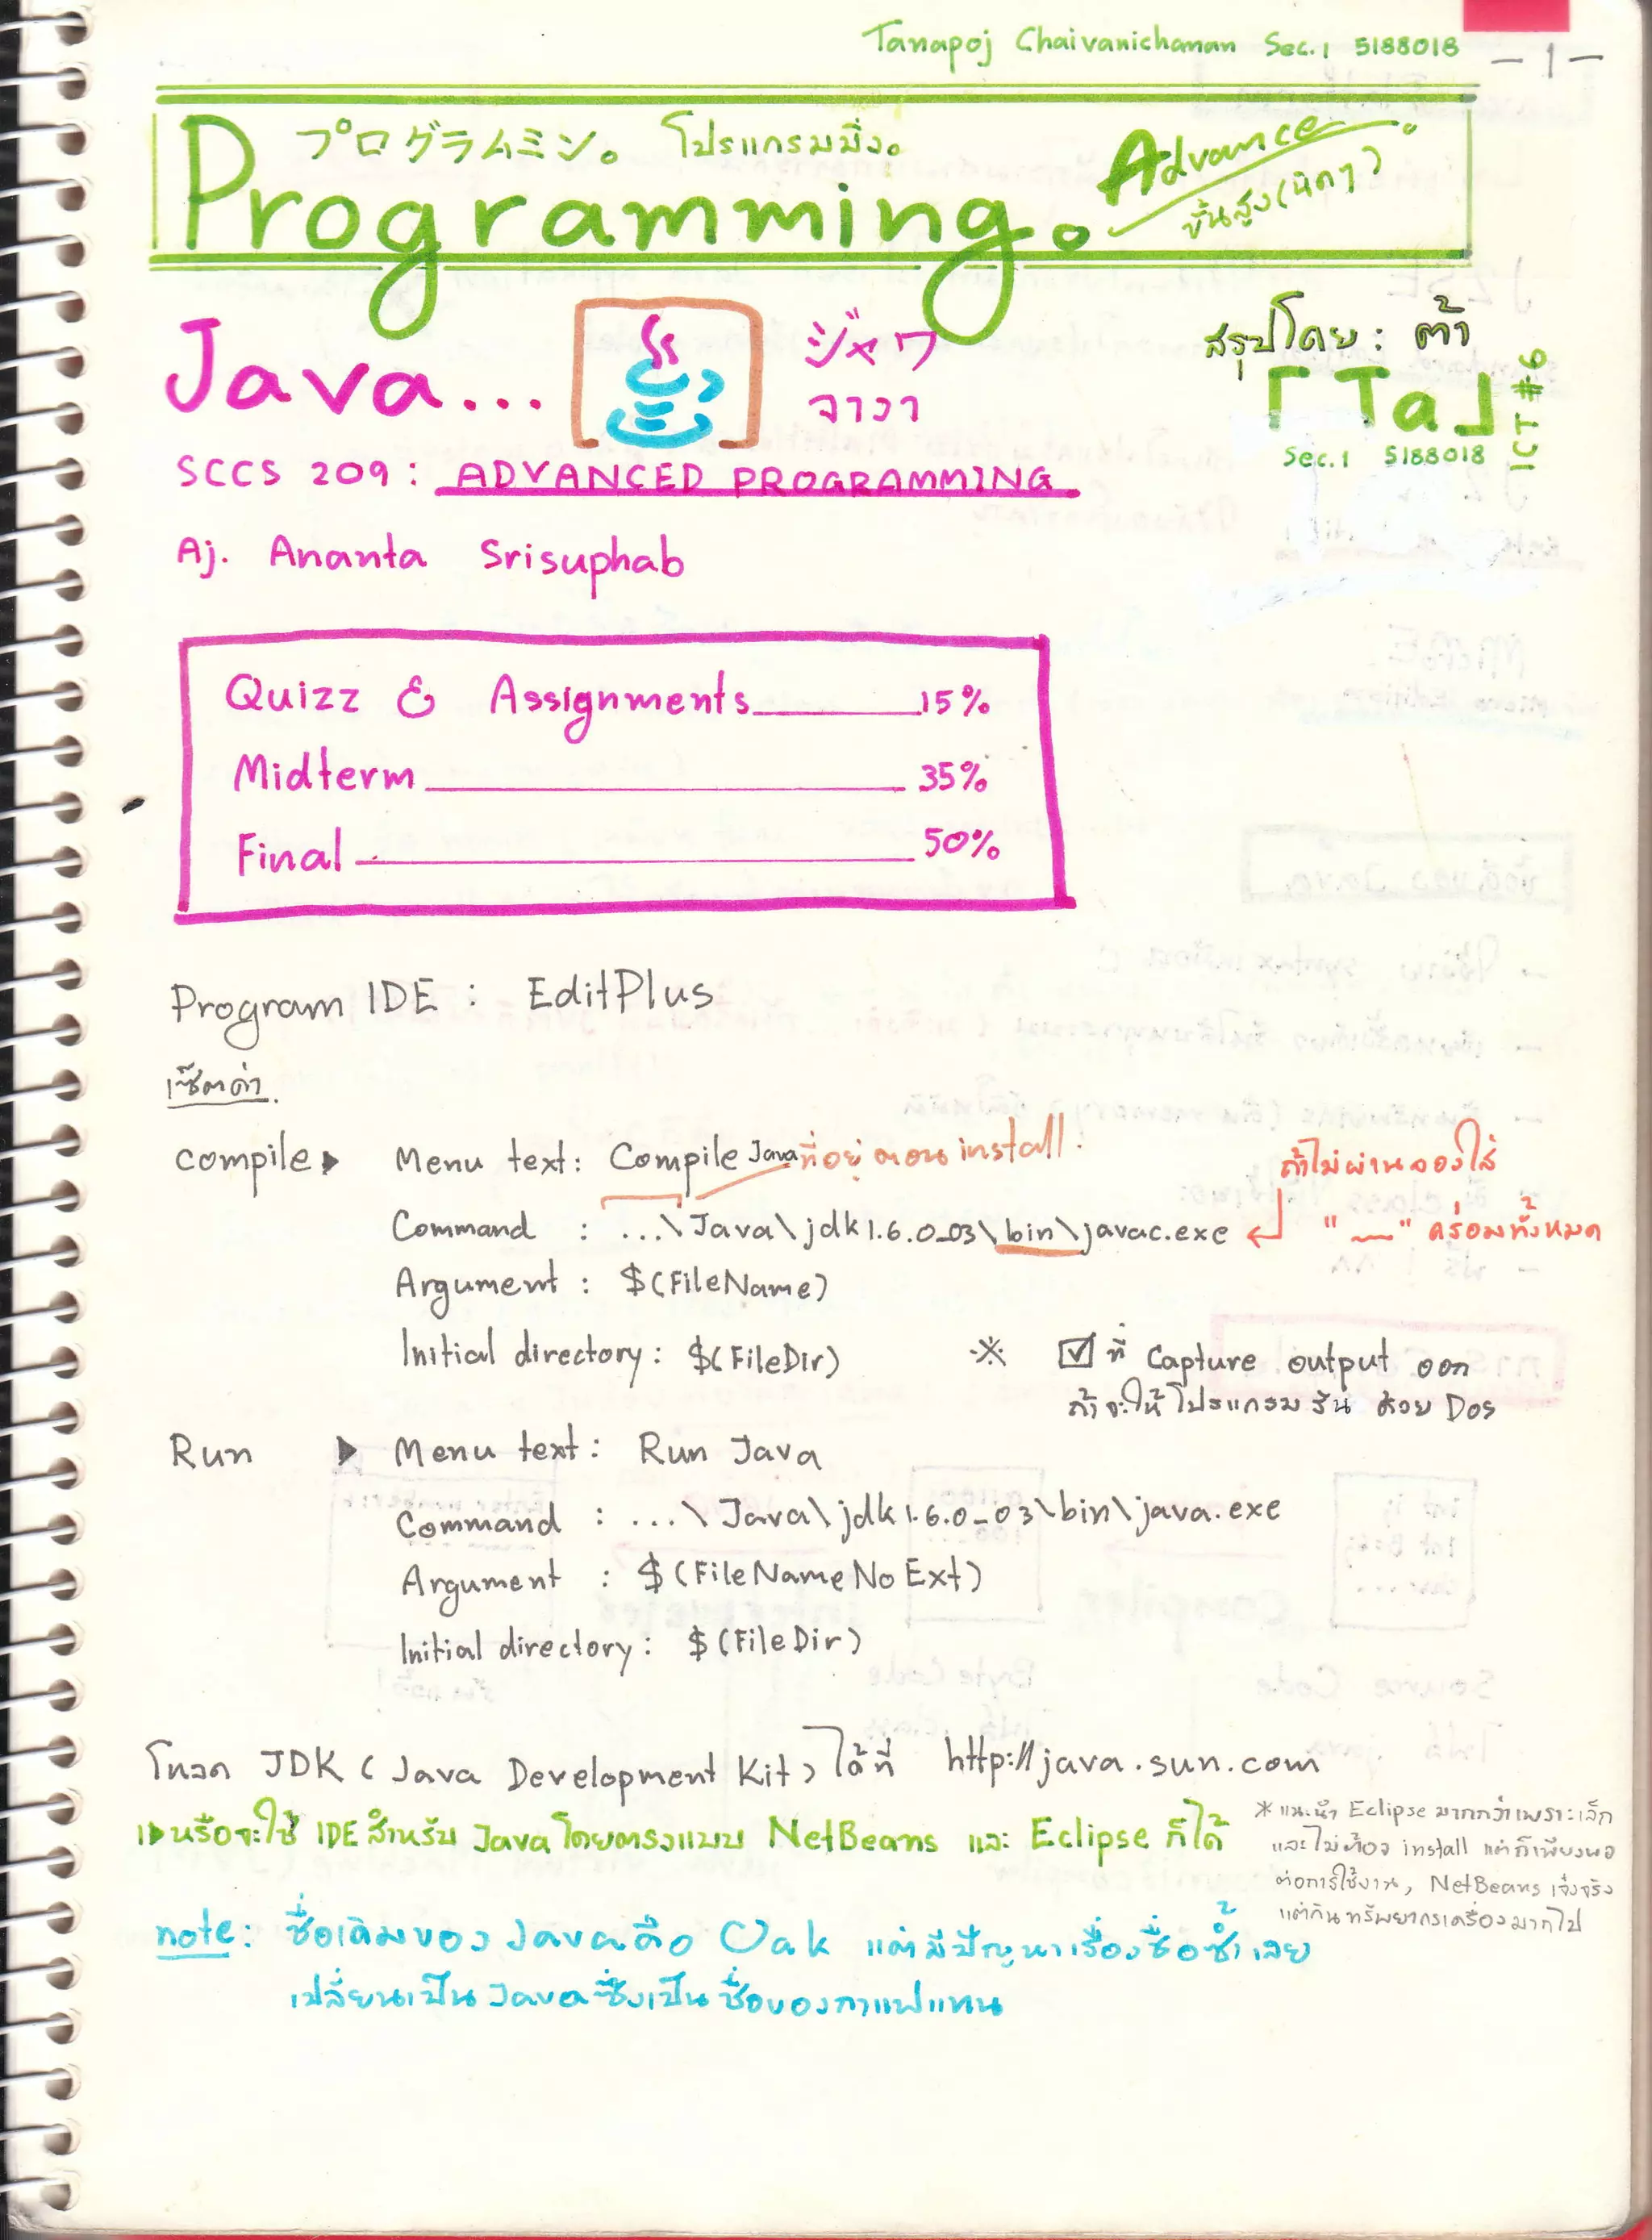 Tanapoj Chaivanichanan Sec.1 5188018
-1-
プログラムミン。 โปรแกรมมิ่ง。
Programming。
Advance
ขั้นสูง(นิดๆ)
Java...
ジャワ
จาวา
สรุปโดย : ต้า
「Ta」
ICT#6
Sec.1 5188018
SCCS 209 : ADVANCED PROGRAMMING
Aj. Ananta Srisuphab
Quizz & Assignments 15%
Midterm 35%
Final 50%
Program IDE : EditPlus
เซ็ตค่า
compile▶ Menu text: Compile Java
ที่อยู่ ตอน install.
ถ้าไม่ผ่านลองใส่
Command : ...\Java\jdk1.6.0_03\bin\javac.exe
"__" คร่อมทั้งหมด
Argument : $(FileName)
Initial directory : $(FileDir)
※ ☑ ที่ Capture output ออก
ถ้าจะให้โปรแกรมรัน ด้วย Dos
Run ▶ Menu text : Run Java
Command : ...\Java\jdk1.6.0_03\bin\java.exe
Argument : $(FileNameNoExt)
Initial directory : $(FileDir)
โหลด JDK (Java Development Kit) ได้ที่ http://java.sun.com
หรือจะใช้ IDE สำหรับ Java โดยตรงแบบ NetBeans และ Eclipse ก็ได้
*แนะนำ Eclipse มากกว่าเพราะเล็ก
และไม่ต้อง install แต่ก็เพียงพอ
ต่อการใช้งาน, NetBeans เจ๋งจริง
แต่กินทรัพยากรเครื่องมากไป
note : ชื่อเดิมของ Java คือ Oak แต่มีปัญหาเรื่องชื่อซ้ำ เลย
เปลี่ยนเป็น Java ซึ่งเป็นชื่อของกาแฟแทน